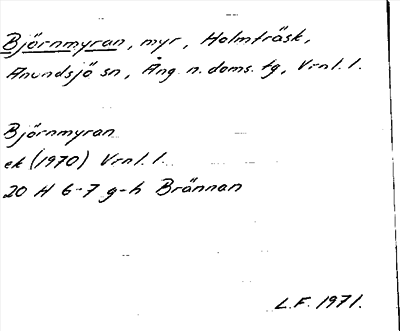 Björnmyran, myr, Holmträsk,
Anundsjö sn, Ång. n. doms. tg, Vrnl. l.
Björnmyran
ek (1970) Vrnl. l.
20 H 6-7 g-h Brännan
L.F. 1971.